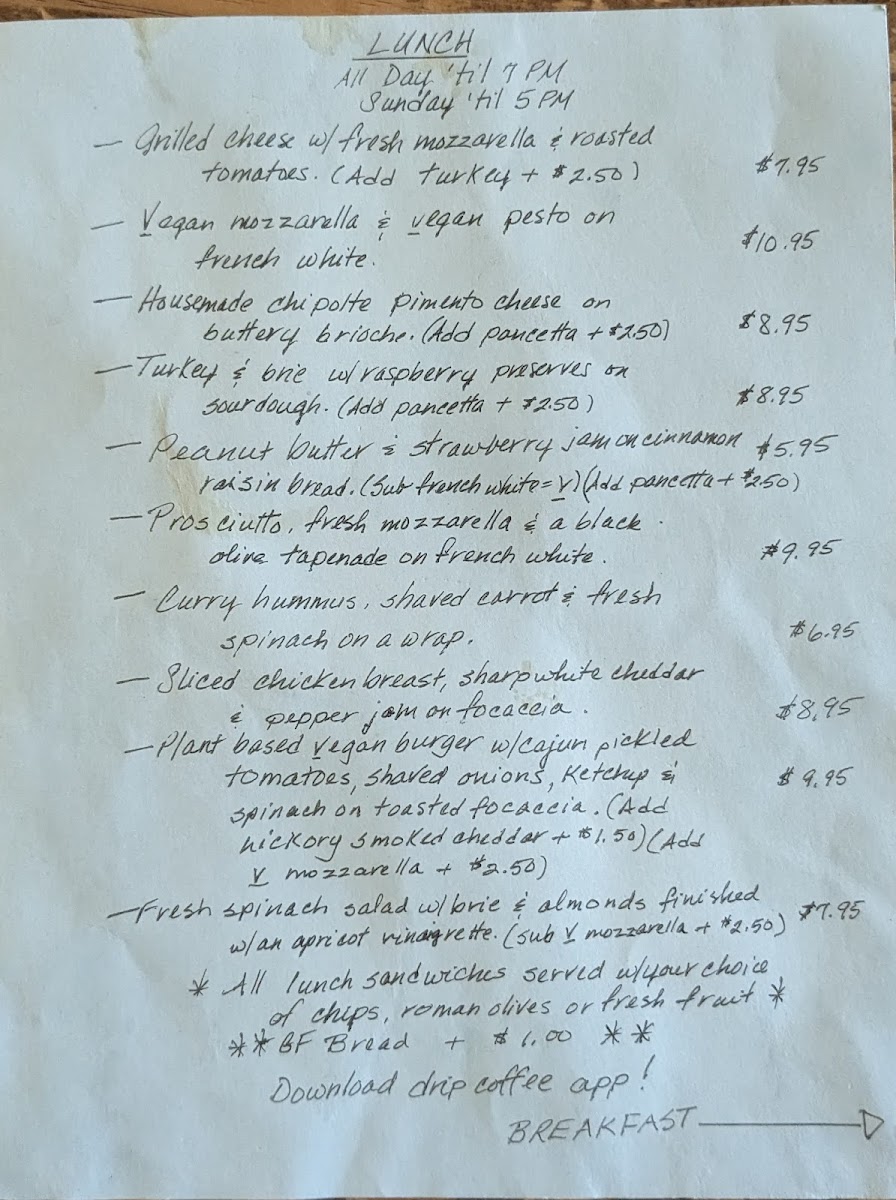 LUNCH
All Day 'til 7 PM
Sunday 'til 5 PM
— Grilled cheese w/ fresh mozzarella & roasted
tomatoes. (Add turkey + $2.50) $7.95
— Vegan mozzarella & vegan pesto on
french white. $10.95
— Housemade chipolte pimento cheese on
buttery brioche. (Add pancetta + $2.50) $8.95
— Turkey & brie w/ raspberry preserves on
sourdough. (Add pancetta + $2.50) $8.95
— Peanut butter & strawberry jam on cinnamon $5.95
raisin bread. (Sub french white = V) (Add pancetta + $2.50)
— Prosciutto, fresh mozzarella & a black
olive tapenade on french white. $9.95
— Curry hummus, shaved carrot & fresh
spinach on a wrap. $6.95
— Sliced chicken breast, sharp white cheddar
& pepper jam on focaccia. $8.95
— Plant based vegan burger w/ cajun pickled
tomatoes, shaved onions, ketchup & $9.95
spinach on toasted focaccia. (Add
hickory smoked cheddar + $1.50) (Add
V mozzarella + $2.50)
— Fresh spinach salad w/ brie & almonds finished $7.95
w/ an apricot vinagrette. (sub V mozzarella + $2.50)
* All lunch sandwiches served w/ your choice
of chips, roman olives or fresh fruit *
** GF Bread + $1.00 **
Download drip coffee app!
BREAKFAST →